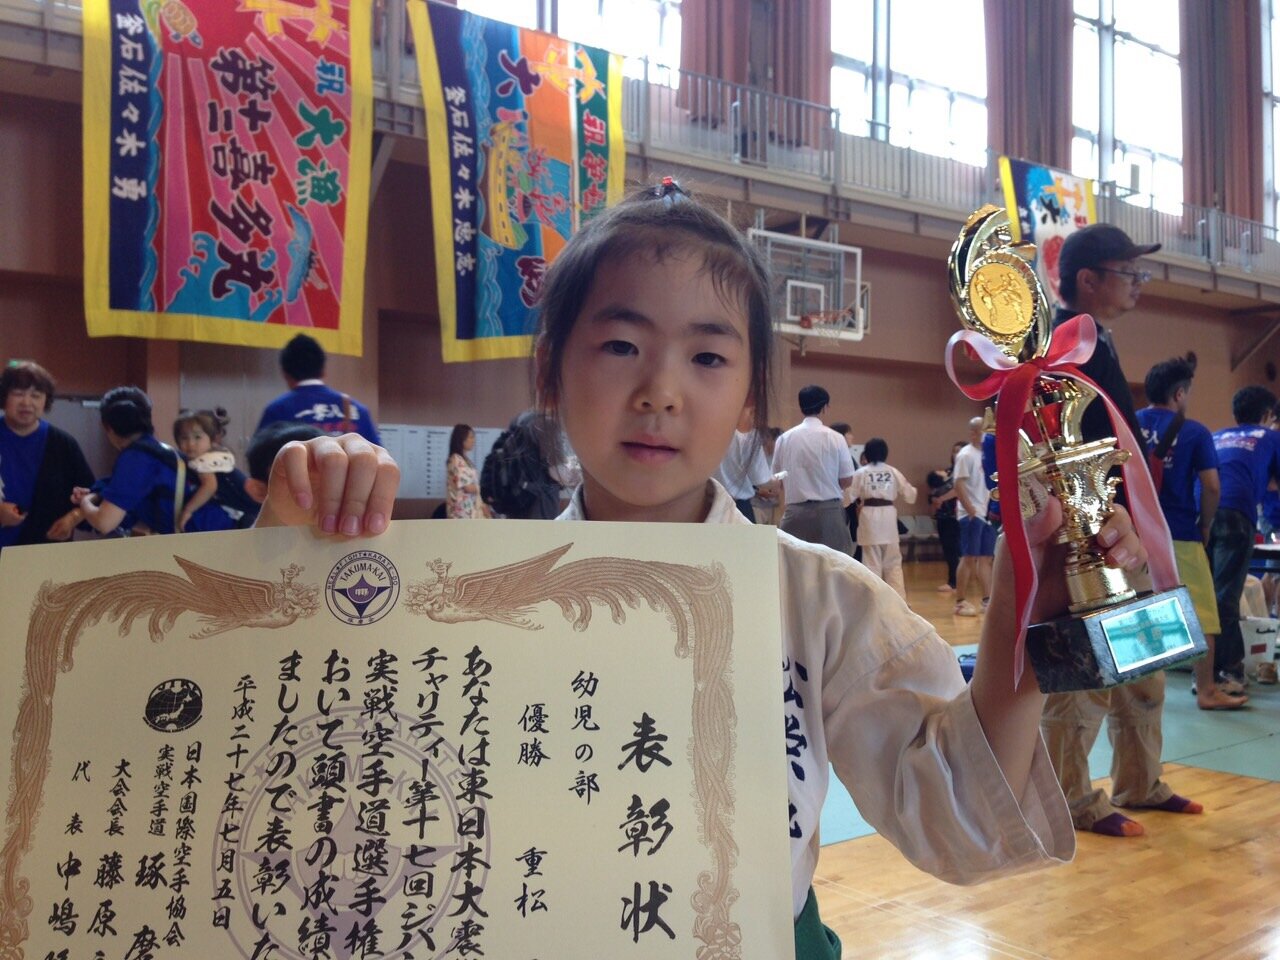 祝 大漁
第十二喜多丸
釜石佐々木 勇
釜石佐々木忠志
祝
大
122
REAL★FIGHT★KARATE-DO
TAKUMA-KAI
表彰状
幼児の部
優勝 重松
あなたは東日本大震
チャリティー第十七回ジパン
実戦空手道選手権
おいて頭書の成績
ましたので表彰いた
平成二十七年七月五日
日本国際空手協会
実戦空手道 琢磨
大会会長 藤原
代表 中嶋